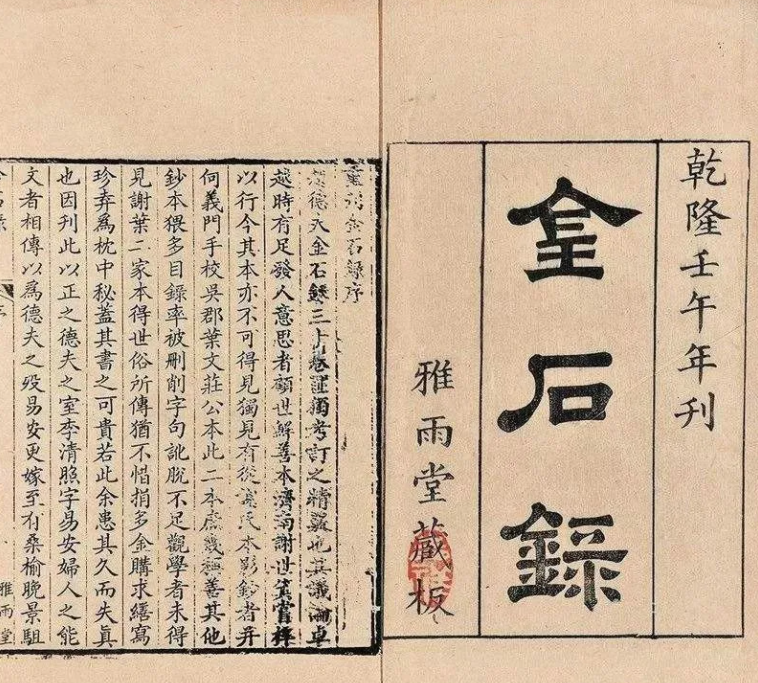 乾隆壬午年刊
金石錄
雅雨堂藏板
重刊金石錄序
趙德夫金石錄三十卷匪獨考訂之精覈也其議論卓
越時有足發人意思者顧世鮮善本濟南謝世箕嘗梓
以行今其本亦不可得見獨見有從謝氏本影鈔者并
何義門手校吳郡葉文莊公本此二本庶幾稱善其他
鈔本猥多目錄率被刪削字句訛脫不足觀學者未得
見謝葉二家本得世俗所傳猶不惜捐多金購求繕寫
珍弆為枕中秘蓋其書之可貴若此余患其久而失真
也因刊此以正之德夫之室李清照字易安婦人之能
文者相傳以為德夫之歿易安更嫁至有桑榆晚景駔
金石錄 序 雅雨堂